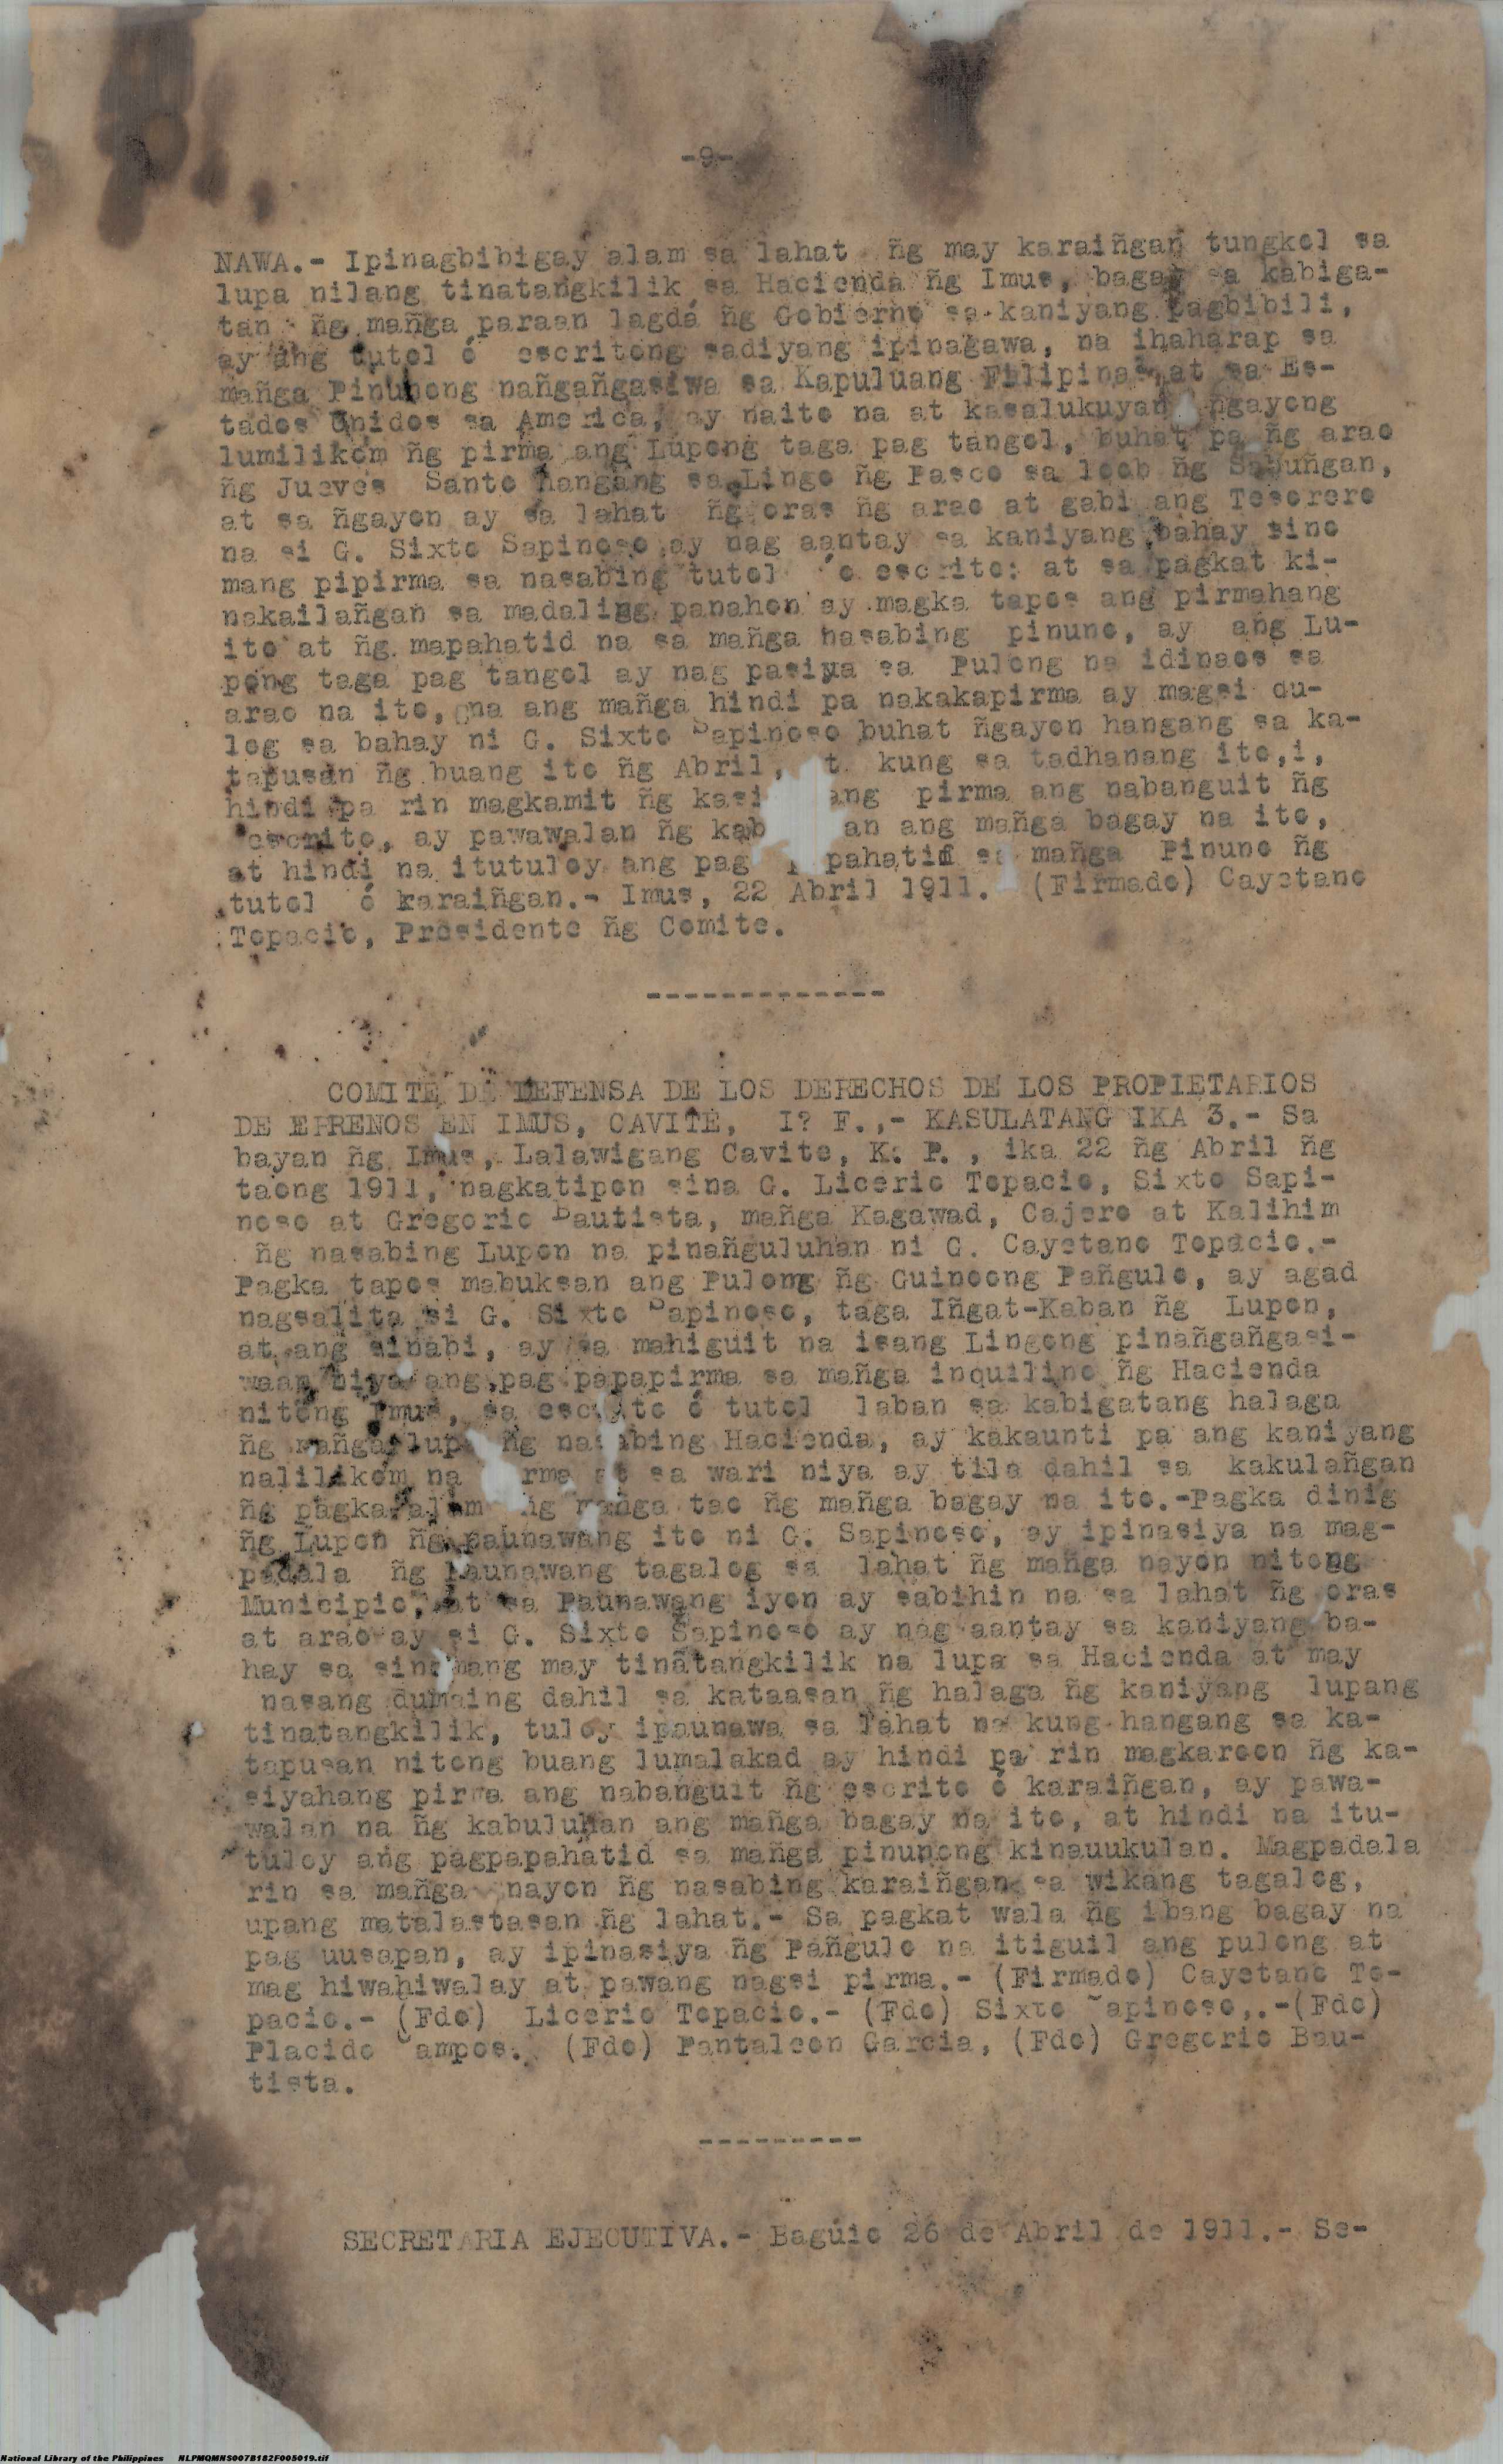 -9-
NAWA.- Ipinagbibigay alam sa lahat ñg may karaiñgan tungkol sa
lupa nilang tinatangkilik sa Hacienda ñg Imus, bagay sa kabiga-
tan ñg mañga paraan lagda ñg Gobierno sa kaniyang pagbibili,
ay ang tutol ó escritong sadiyang ipinagawa, na ihaharap sa
mañga Pinunong nañgañgasiwa sa Kapuluang Filipinas, at sa Es-
tados Unidos sa America, ay naito na at kasalukuyan ñgayong
lumilikom ñg pirma ang Lupong taga pag tangol, buhat pa ñg arao
ñg Jueves Santo hangang sa Lingo ñg Pasco sa loob ñg Sabuñgan,
at sa ñgayon ay sa lahat ñg oras ñg arao at gabi ang Tesorero
na si G. Sixto Sapinoso ay nag aantay sa kaniyang bahay sino
mang pipirma sa nasabing tutol ó escrito: at sa pagkat ki-
nakailañgan sa madaling panahon ay magka tapos ang pirmahang
ito at ñg mapahatid na sa mañga nasabing pinuno, ay ang Lu-
pong taga pag tangol ay nag pasiya sa Pulong na idinaos sa
arao na ito, na ang mañga hindi pa nakakapirma ay magsi du-
log sa bahay ni G. Sixto Sapinoso buhat ñgayon hangang sa ka-
tapusan ñg buang ito ñg Abril, t kung sa tadhanang ito,i,
hindi pa rin magkamit ñg kasi ang pirma ang nabanguit ñg
escrito, ay pawawalan ñg kab an ang mañga bagay na ito,
at hindi na itutuloy ang pag pahatid sa mañga Pinuno ñg
tutol ó karaiñgan.- Imus, 22 Abril 1911. (Firmado) Cayetano
Topacio, Presidente ñg Comite.
-------------
COMITE DE DEFENSA DE LOS DERECHOS DE LOS PROPIETARIOS
DE ERRENOS EN IMUS, CAVITE, I? F.,- KASULATANG IKA 3.- Sa
bayan ñg Imus, Lalawigang Cavite, K. P. , ika 22 ñg Abril ñg
taong 1911, nagkatipon sina G. Licerio Topacio, Sixto Sapi-
noso at Gregorio Bautista, mañga Kagawad, Cajero at Kalihim
ñg nasabing Lupon na pinañguluhan ni G. Cayetano Topacio.-
Pagka tapos mabuksan ang Pulong ñg Guinoong Pañgulo, ay agad
nagsalita si G. Sixto Sapinoso, taga Iñgat-Kaban ñg Lupon,
at ang sinabi, ay sa mahiguit na isang Lingong pinañgañgasi-
waan niya ang pag papapirma sa mañga inquilino ñg Hacienda
nitong Imus, sa escrito ó tutol laban sa kabigatang halaga
ñg mañga lupa ñg nasabing Hacienda, ay kakaunti pa ang kaniyang
nalilikom na rma at sa wari niya ay tila dahil sa kakulañgan
ñg pagkaalam ñg mañga tao ñg mañga bagay na ito.-Pagka dinig
ñg Lupon ñg paunawang ito ni G. Sapinoso, ay ipinasiya na mag-
padala ñg Paunawang tagalog sa lahat ñg mañga nayon nitong
Municipio, at sa Paunawang iyon ay sabihin na sa lahat ñg oras
at arao ay si G. Sixto Sapinoso ay nag aantay sa kaniyang ba-
hay sa sino mang may tinatangkilik na lupa sa Hacienda at may
nasang dumaing dahil sa kataasan ñg halaga ñg kaniyang lupang
tinatangkilik, tuloy ipaunawa sa lahat na kung hangang sa ka-
tapusan nitong buang lumalakad ay hindi pa rin magkaroon ñg ka-
siyahang pirma ang nabanguit ñg escrito ó karaiñgan, ay pawa-
walan na ñg kabuluhan ang mañga bagay na ito, at hindi na itu-
tuloy ang pagpapahatid sa mañga pinunong kinauukulan. Magpadala
rin sa mañga nayon ñg nasabing karaiñgan sa wikang tagalog,
upang matalastasan ñg lahat.- Sa pagkat wala ñg ibang bagay na
pag uusapan, ay ipinasiya ñg Pañgulo na itiguil ang pulong at
mag hiwahiwalay at pawang nagsi pirma.- (Firmado) Cayetano To-
pacio.- (Fdo) Licerio Topacio.- (Fdo) Sixto Sapinoso,.-(Fdo)
Placido Campos. (Fdo) Pantaleon Garcia, (Fdo) Gregorio Bau-
tista.
---------
SECRETARIA EJECUTIVA.- Baguio 26 de Abril de 1911.- Se-
National Library of the Philippines NLPMQMNS007B182F005019.tif